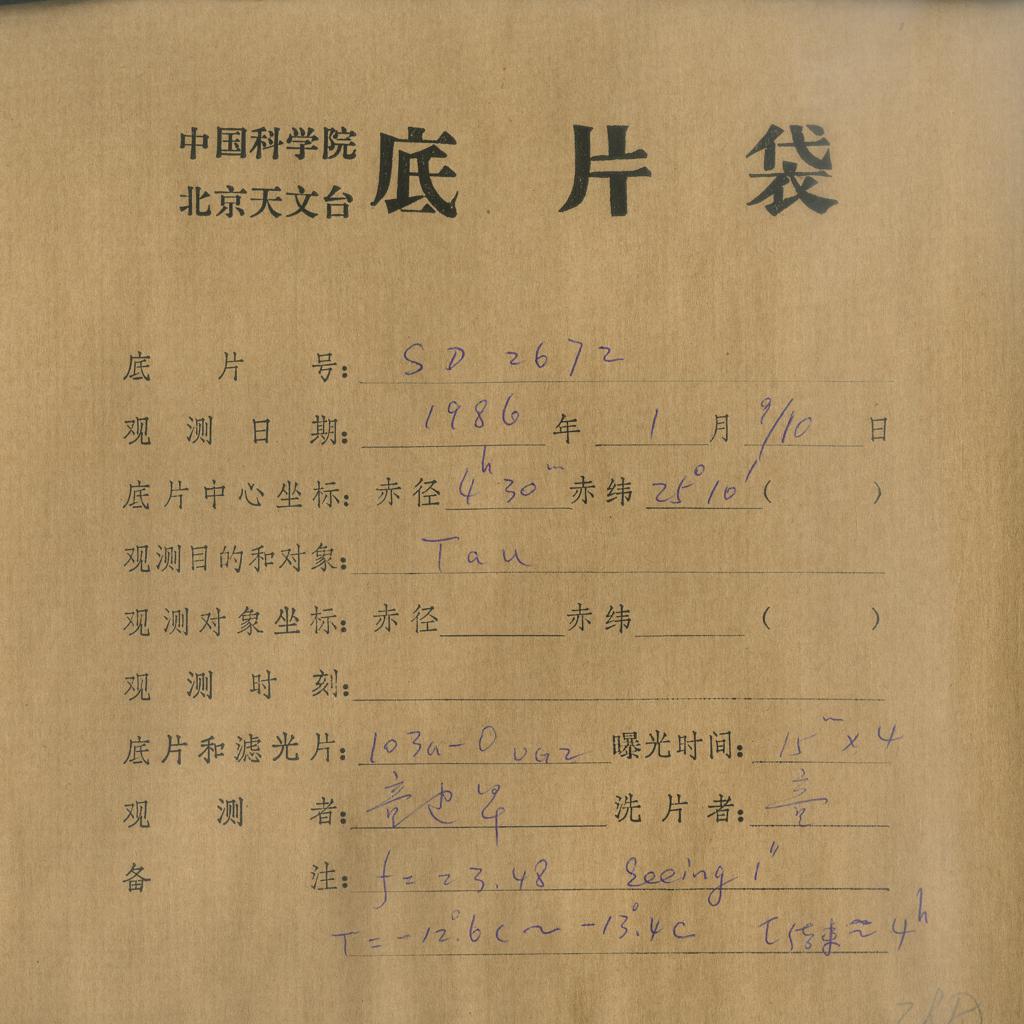 中国科学院
北京天文台
底片袋
底片号: SD 2672
观测日期: 1986 年 1 月 9/10 日
底片中心坐标: 赤径 4h 30m 赤纬 25°10′ ( )
观测目的和对象: Tau
观测对象坐标: 赤径 赤纬 ( )
观测时刻:
底片和滤光片: 103a-O UG2 曝光时间: 15m × 4
观测者: 洗片者:
备注: f = 23.48 Seeing 1″
T = -12°.6 C ~ -13°.4 C t结束 ≈ 4h